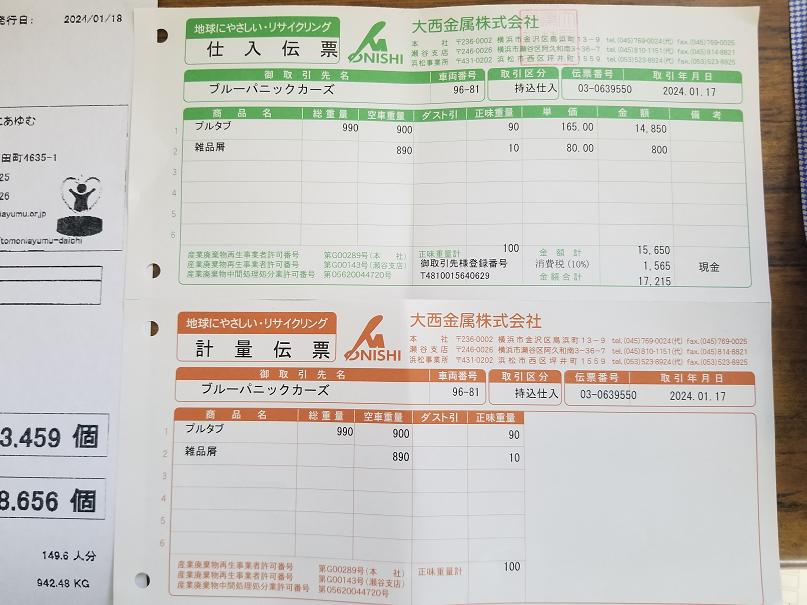 発行日: 2024/01/18
にあゆむ
田町4635-1
25
26
niayumu.or.jp
tomoniayumu-daichi
3.459 個
8.656 個
149.6 人分
942.48 KG
地球にやさしい・リサイクリング
仕入伝票
ONISHI
大西金属株式会社
本 社 〒236-0002 横浜市金沢区鳥浜町13-9 tel.(045)769-0024(代) fax.(045)769-0025
瀬谷支店 〒246-0026 横浜市瀬谷区阿久和南3-36-7 tel.(045)810-1151(代) fax.(045)814-8821
浜松事業所 〒431-0202 浜松市西区坪井町1559 tel.(053)523-8924(代) fax.(053)523-8925
御取引先名 車両番号 取引区分 伝票番号 取引年月日
ブルーパニックカーズ 96-81 持込仕入 03-0639550 2024.01.17
商品名 総重量 空車重量 ダスト引 正味重量 単価 金額 備考
1 プルタブ 990 900 90 165.00 14,850
2 雑品屑 890 10 80.00 800
3
4
5
6
正味重量計 100 金額計 15,650
消費税(10%) 1,565 現金
金額合計 17,215
産業廃棄物再生事業者許可番号 第G00289号(本 社)
産業廃棄物再生事業者許可番号 第G00143号(瀬谷支店)
産業廃棄物中間処理処分業許可番号 第05620044720号
御取引先様登録番号
T4810015640629
地球にやさしい・リサイクリング
計量伝票
ONISHI
大西金属株式会社
本 社 〒236-0002 横浜市金沢区鳥浜町13-9 tel.(045)769-0024(代) fax.(045)769-0025
瀬谷支店 〒246-0026 横浜市瀬谷区阿久和南3-36-7 tel.(045)810-1151(代) fax.(045)814-8821
浜松事業所 〒431-0202 浜松市西区坪井町1559 tel.(053)523-8924(代) fax.(053)523-8925
御取引先名 車両番号 取引区分 伝票番号 取引年月日
ブルーパニックカーズ 96-81 持込仕入 03-0639550 2024.01.17
商品名 総重量 空車重量 ダスト引 正味重量
1 プルタブ 990 900 90
2 雑品屑 890 10
3
4
5
6
産業廃棄物再生事業者許可番号 第G00289号(本 社)
産業廃棄物再生事業者許可番号 第G00143号(瀬谷支店)
産業廃棄物中間処理処分業許可番号 第05620044720号
正味重量計 100